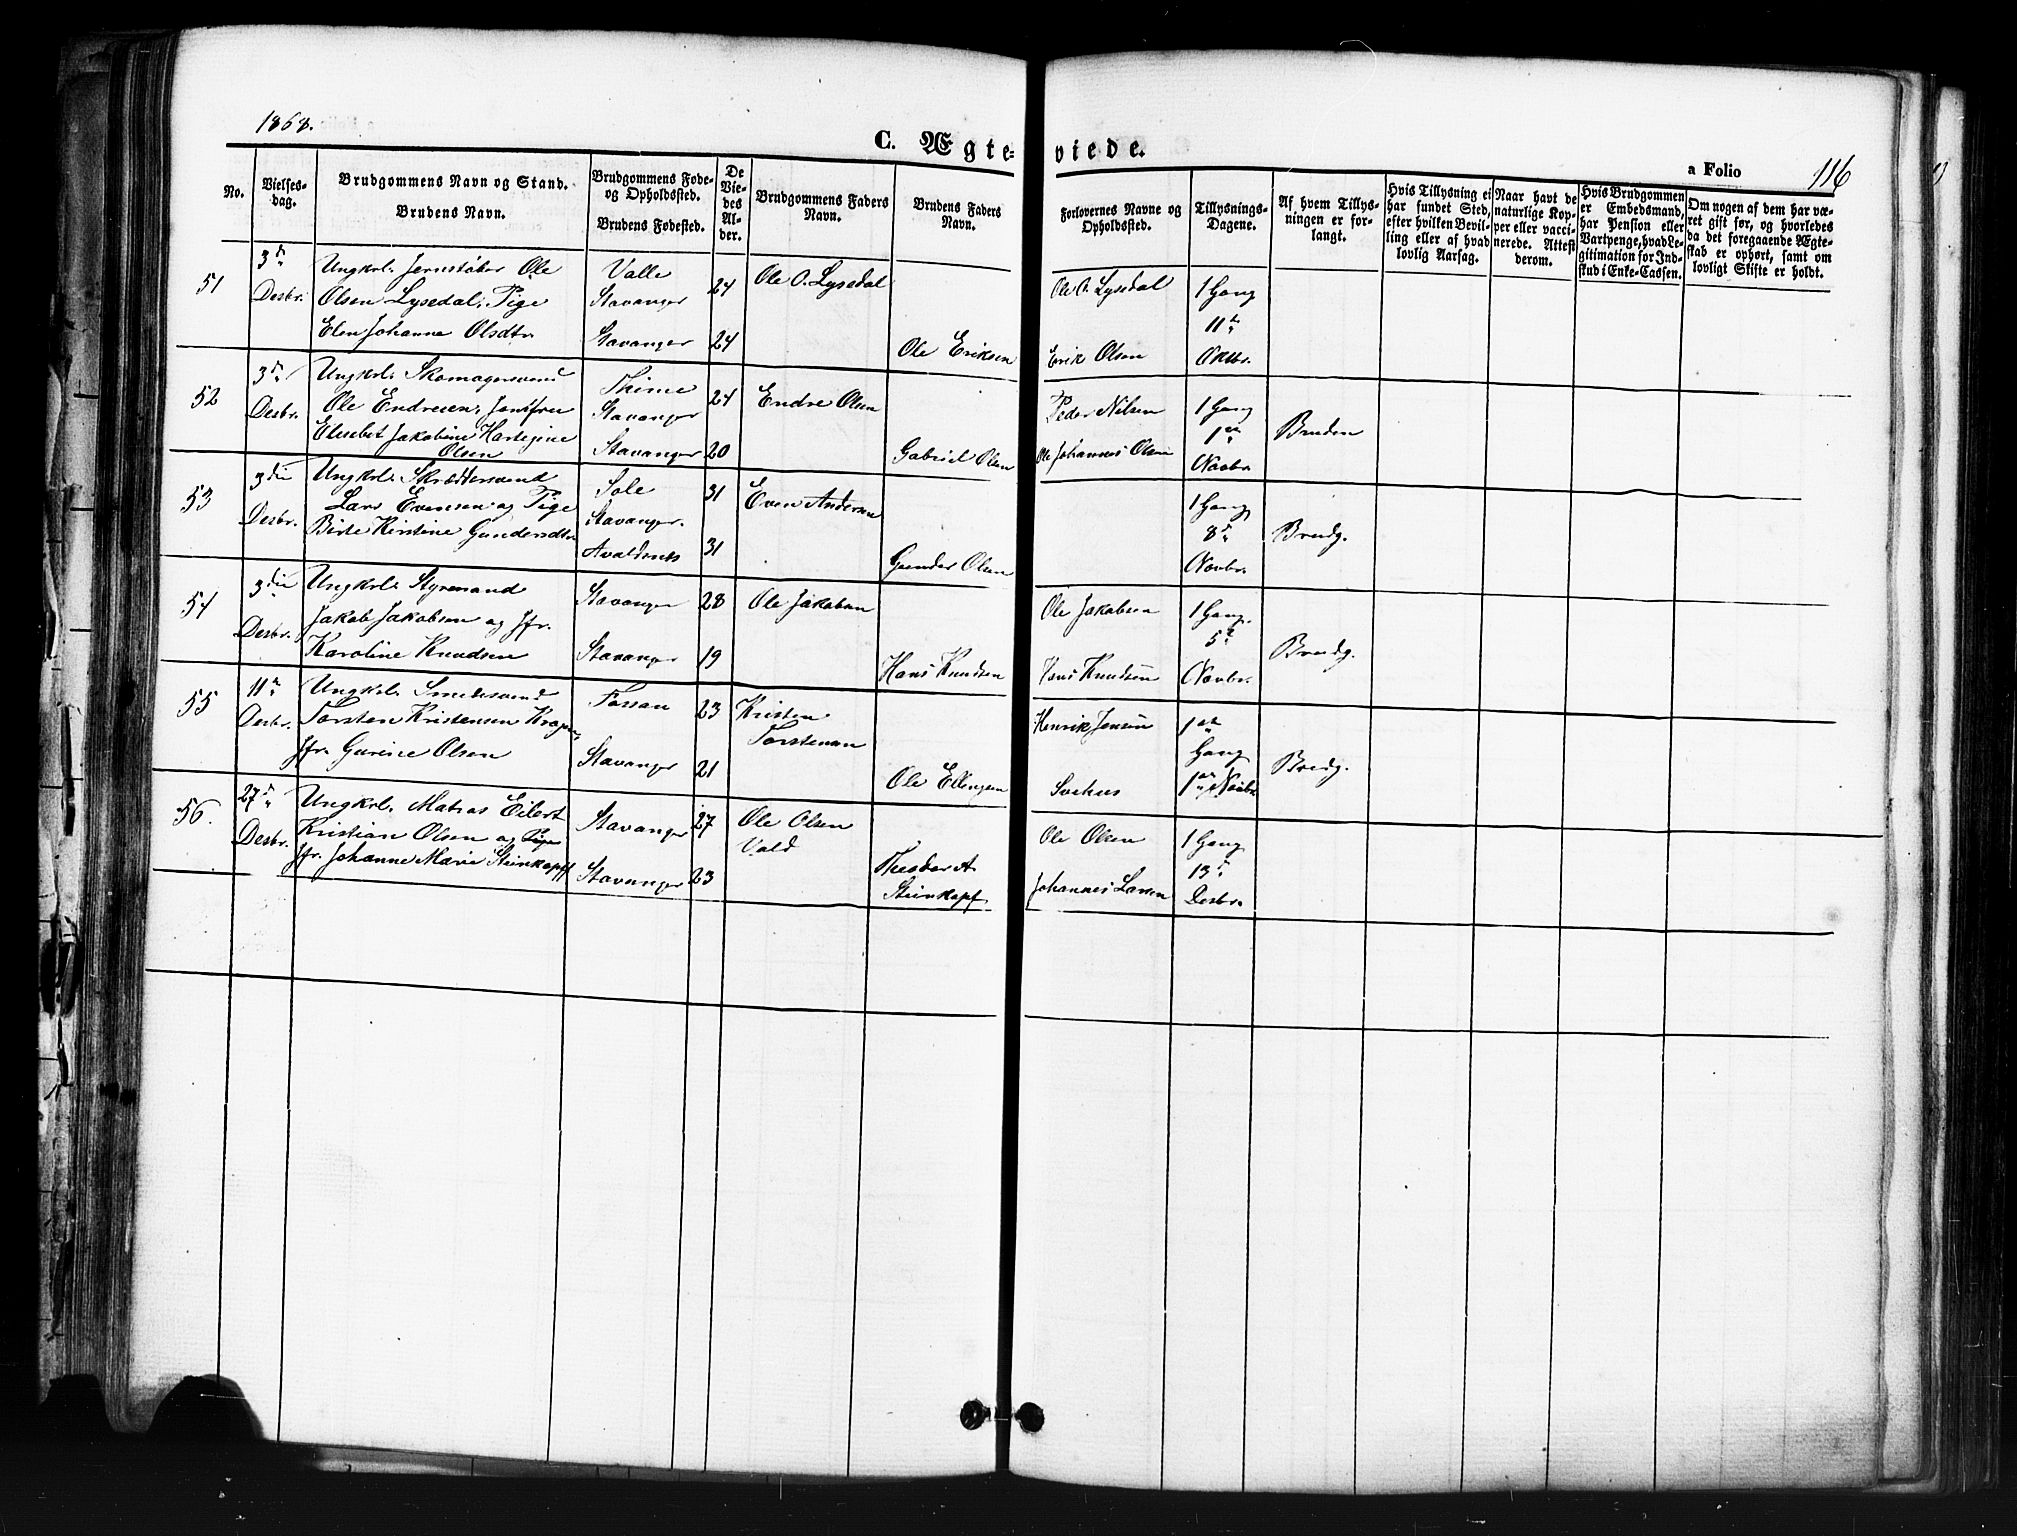 1868.
C. Ægteviede.
a Folio 116
No.
Vielsesdag.
Brudgommens Navn og Stand.
Brudens Navn.
Brudgommens Føde- og Opholdssted.
Brudens Fødested.
De Viedes Alder.
Brudgommens Faders Navn.
Brudens Faders Navn.
Forlovernes Navne og Opholdssted.
Tillysnings-Dagene.
Af hvem Tillysningen er forlangt.
Hvis Tillysning ei har fundet Sted, efter hvilken Bevilling eller af hvad lovlig Aarsag.
Naar havt de naturlige Kopper eller vaccinerede. Attest derom.
Hvis Brudgommen er Embedsmand, har Pension eller Vartpenge, hvad Legitimation for Indskud i Enke-Cassen.
Om nogen af dem har været gift før, og hvorledes da det foregaaende Ægteskab er ophørt, samt om lovligt Skifte er holdt.
51
3die
Desbr.
Ungkrl. Jernstøber Ole
Olsen Lysedal, Pige
Elen Johanne Olsdtr.
Valle
Stavanger
Stavanger
24
24
Ole O. Lysedal
Ole Eriksen
Ole O. Lysedal
Erik Olsen
1 Gang
11te
Oktbr.
52
3die
Desbr.
Ungkrl. Skomagersvend
Ole Endresen, Jomfru
Elesebet Jakobine Hartvigine
Olsen
Thime
Stavanger
Stavanger
24
20
Endre Olsen
Gabriel Olsen
Peder Nilsen
Ole Johannes Olsen
1 Gang
1ste
Novbr.
Bruden
53
3die
Desbr.
Ungkrl. Skræddersvend
Lars Evensen og Pige
Birte Kirstine Gundersdtr
Sole
Stavanger.
Avaldsnes
31
31
Even Andersen
Gunder Olsen
1 Gang
8de
Novbr.
Brudg.
54
3die
Desbr.
Ungkrl. Styrmand
Jakob Jakobsen og Jfr.
Karoline Knudsen
Stavanger
Stavanger
28
19
Ole Jakobsen
Hans Knudsen
Ole Jakobsen
Hans Knudsen
1 Gang.
5te
Novbr.
Brudg.
55
11te
Desbr.
Ungkrl. Smedesvend
Torsten Kristensen
Jfr. Gurine Olsen
Fossan
Stavanger
23
21
Kristen
Torstensen
Ole Ellingsen
Henrik Jensen
Svehus
1ste
Gang
1ste Novbr.
Brudg.
56.
27de
Desbr.
Ungkrl. Matias Eilert
Kristian Olsen og Pige
Jfr. Johanne Marie Steinkopff
Stavanger
Stavanger
27
23
Ole Olsen
Vald
Steinkopf
Ole Olsen
Johannes Larsen
1 Gang
13de
Desbr.